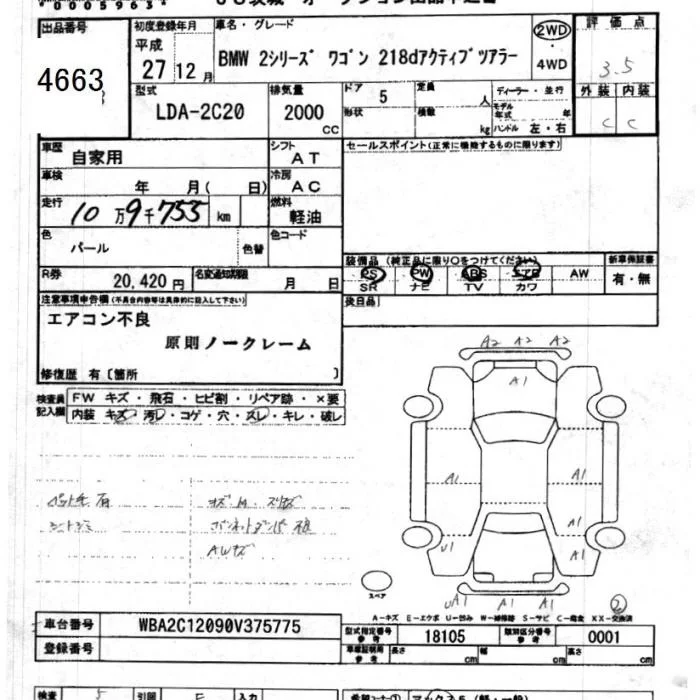 000059631
出品番号
4663
初度登録年月
平成
27 12月
車名・グレード
BMW 2シリーズ ワゴン 218dアクティブツアラー
2WD
4WD
評価点
3.5
外装 内装
C C
型式
LDA-2C20
排気量
2000
CC
ドア 5
形状
定員 人
積数 kg
ディーラー・並行
モデル年式 年
ハンドル 左・右
車歴
自家用
シフト
AT
セールスポイント(正常に機能するものに限ります)
車検
年 月(日)
冷房
AC
走行
10万9千755 km
燃料
軽油
色
パール
色替
色コード
装備品(純正品に限り○をつけてください)
新車保証書
PS PW ABS エアB AW
SR ナビ TV カワ
有・無
R券
20,420円
名変通知期限
月 日
後日品
注意事項申告欄(不具合内容等は具体的に記入して下さい)
エアコン不良
原則ノークレーム
修復歴 有〔箇所 〕
検査員記入欄
FW キズ・飛石・ヒビ割・リペア跡・×要
内装 キズ・汚レ・コゲ・穴・スレ・キレ・破レ
A2 A2 A2
A1
A1
A1
A1
U1
A1
A1
スペア
A-キズ E-エクボ U-凹み W-補修跡 S-サビ C-腐食 XX-交換済
車台番号
WBA2C12090V375775
登録番号
型式指定番号参考
18105
類別区分番号参考
0001
車庫証明用参考
長さ cm
幅 cm
高さ cm